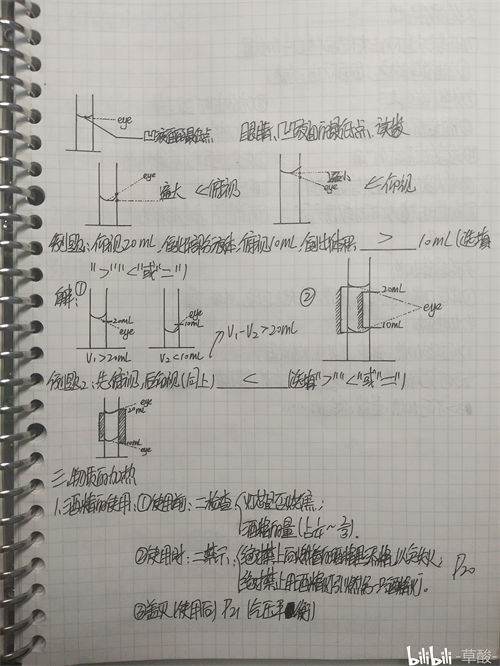 eye
凹液面的最低点
眼睛、凹液面的最低点、读数
eye
偏大 <俯视
偏小
eye
<仰视
例题1: 仰视20mL, 倒出部分液体, 俯视10mL, 倒出体积 > 10mL (选填
">""<"或"=")
解: ①
20mL
eye
eye
10mL
V₁>20mL
V₂<10mL
V₁-V₂>20mL
②
20mL
eye
10mL
例题2: 先俯视, 后仰视 (同上) < (选填">""<"或"=")
eye
20mL
10mL
eye
三. 物质的加热
1. 酒精灯使用: ①使用前: 二检查 灯芯是否烧焦;
酒精的量
②使用时: 二禁示: 绝对禁止向燃着的酒精灯添加酒精, 以免失火;
绝对禁止用酒精灯引燃另一只酒精灯.
P20
使用同 P21
bilibili -草酸-